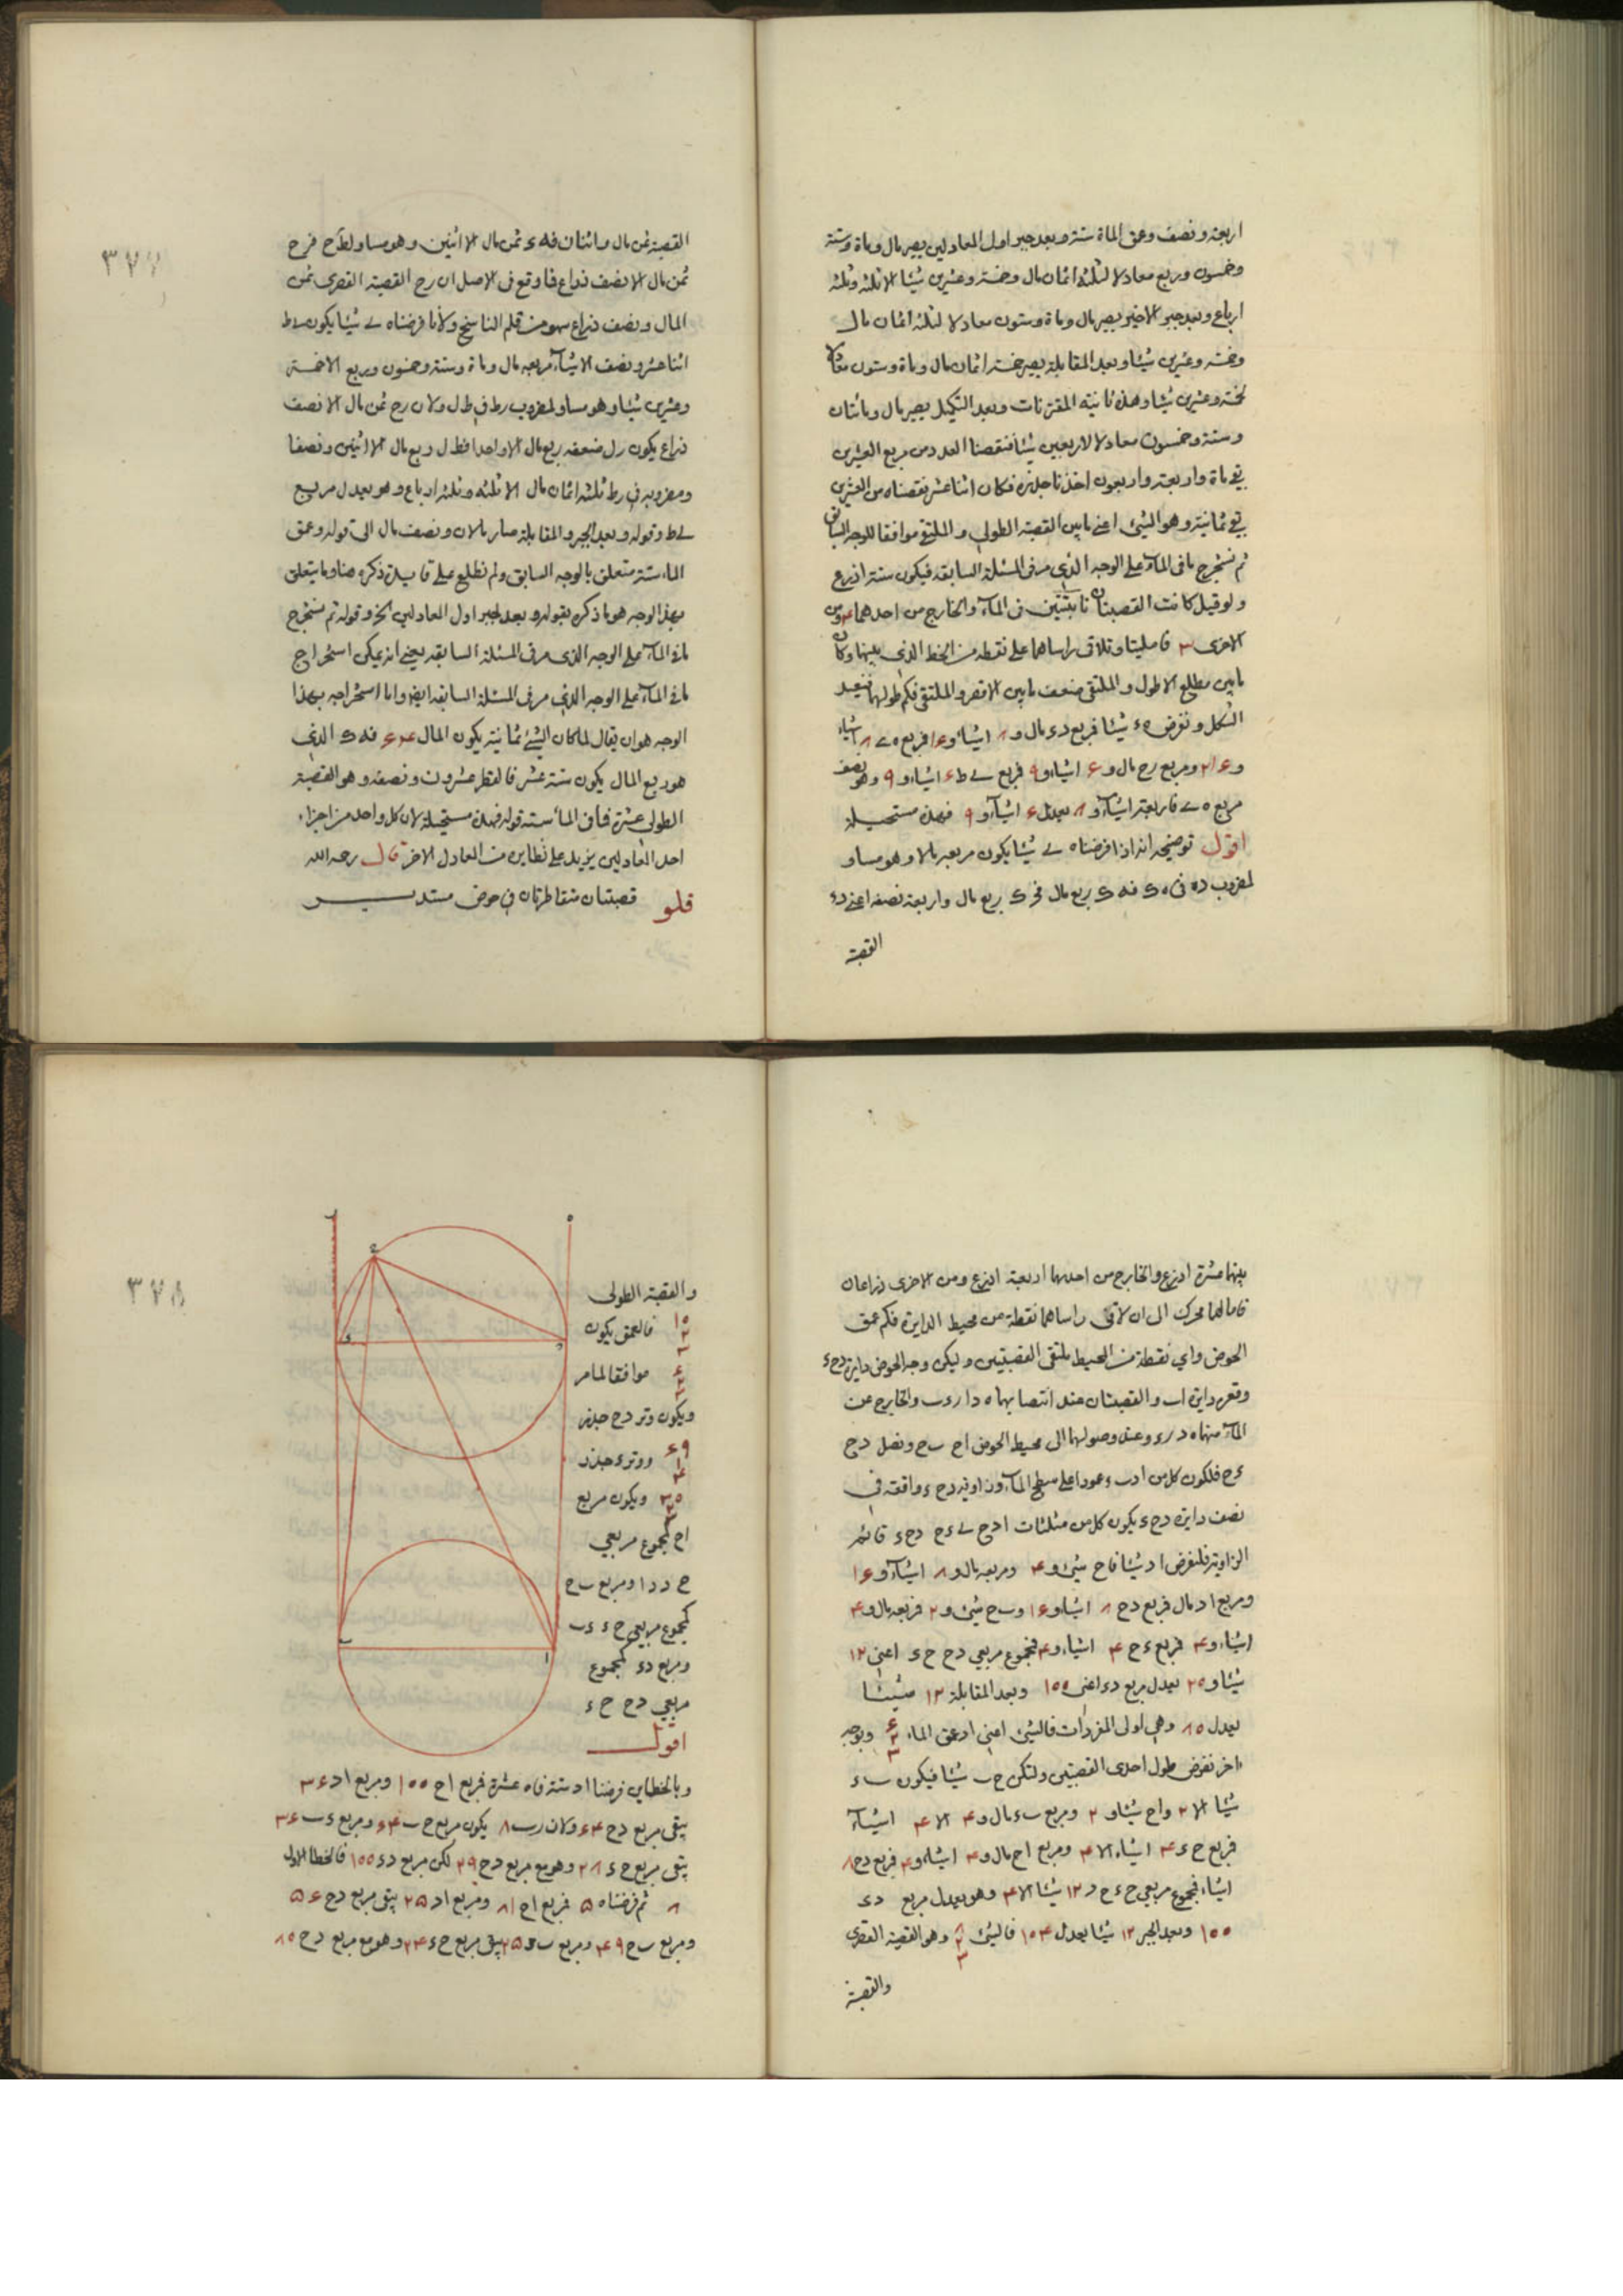 اربعة ونصف وعمق الماء ستة وبعد جبر اول المعادلين يصير مال ومأة وستة
وخمسون وربع معادلا لثلثة اثمان مال وخمسة وعشرين شيئا الا ثلثة وثلثة
ارباع وبعد جبر الاخير يصير مال ومأة وستون معادلا لثلثة اثمان مال
وخمسة وعشرين شيئا وبعد المقابلة يصير خمسة اثمان مال ومأة وستون معادلا
لخمسة وعشرين شيئا وهذه ثانية المقترنات وبعد التكميل يصير مال ومائتان
وستة وخمسون معادلا لاربعين شيئا فنقصنا العدد من مربع العشرين
بقي مأة واربعة واربعون اخذنا جذره فكان اثنا عشر نقصناه من العشرين
بقي ثمانية وهو الشئ اعني مابين القصبة الطولى والملتقى موافقا للوجه السابق
ثم نستخرج مافي الماء على الوجه الذي مر في المسئلة السابقة فيكون ستة اذرع
ولو قيل كانت القصبتان نابتتين في الماء والخارج من احدهما ۴ ومن
الاخرى ۳ فامليتا وتلاقى راساهما على نقطة من الخط الذي بينهما وكان
مابين مطلع الاطول والملتقى ضعف مابين الاقصر والملتقى فكم طولهما فنعيد
الشكل ونفرض ه‍ ء شيئا فمربع د ء مال و ۸ اشياء و ۱۶ فمربع ه‍ ى ۸ اشياء
و ۱۶ ومربع رح مال و ۶ اشياء و ۹ فمربع ى ط ۶ اشياء و ۹ وهو نصف
مربع ه‍ ى فاربعة اشياء و ۸ يعدل ۶ اشياء و ۹ فهذه مستحيلة
اقول توضيحه انه اذا فرضناه ى شيئا يكون مربعه مالا وهو مساو
لمضروب ده في ه‍ ك فه‍ ك ربع مال فد ك ربع مال واربعة نصفه اعني د ء
القصبة
۳۷۷
القصبة ثمن مال واثنان فه‍ ء ثمن مال الا اثنين وهو مساو لط ح فرح
ثمن مال الا نصف ذراع فما وقع في الاصل ان رح القصبة القصرى ثمن
المال ونصف ذراع سهو من قلم الناسخ ولأنا فرضناه ى شيئا يكون ى ط
اثنا عشر ونصف الا شيئا مربعه مال ومأة وستة وخمسون وربع الا خمسة
وعشرين شيئا وهو مساو لمضروب رط في ط ل ولان رح ثمن مال الا نصف
ذراع يكون رل ضعفه ربع مال الا واحدا فط ل ربع مال الا اثنين ونصفا
ومضروبه في رط ثلثة اثمان مال الا ثلثة وثلثة ارباع وهو يعدل مربع
ى ط وقوله وبعد الجبر والمقابلة صار مالان ونصف مال الى قوله وعمق
الماء ستة متعلق بالوجه السابق ولم نطلع على فائدة ذكره هنا ومايتعلق
بهذا الوجه هو ماذكره بقوله وبعد جبر اول المعادلين الخ وقوله ثم نستخرج
مافي الماء على الوجه الذي مر في المسئلة السابقة يعني انه يمكن استخراج
مافي الماء على الوجه الذي مر في المسئلة السابقة ايضا واما استخراجه بهذا
الوجه هو ان يقال لما كان الشئ ثمانية يكون المال ۶۴ فه‍ ك الذي
هو ربع المال يكون ستة عشر فالقطر عشرون ونصفه وهو القصبة
الطولى عشرة فما في الماء ستة قوله فهذه مستحيلة لان كل واحد من اجزاء
احد المعادلين يزيد على نظايره من العادل الاخر قال رحمه الله
قلو قصبتان متقاطرتان في حوض مستدير
بينهما عشرة اذرع والخارج من احديهما اربعة اذرع ومن الاخرى ذراعان
فامالهما محرك الى ان لاقى راساهما نقطة من محيط الدايرة فكم عمق
الحوض واي نقطة من المحيط ملتقى القصبتين وليكن وجه الحوض دايرة دح ء
وقعره دايرة اب والقصبتان عند انتصابهما ه‍ دا ر ء ب والخارج من
الماء منهما ه‍ د ر ء وعند وصولهما الى محيط الحوض اح ب ح ونصل دح
ء ح فلكون كل من اد ب ء عمودا على سطح الماء وزاوية دح ء واقعة في
نصف دايرة دح ء يكون كل من مثلثات ادح ب ء ح دح ء قائم
الزاوية فلنفرض اد شيئا فاح شئ و ۴ ومربعه مال و ۸ اشياء و ۱۶
ومربع اد مال فمربع دح ۸ اشياء و ۱۶ وب ح شئ و ۲ فمربعه مال و ۴
اشياء و ۴ فمربع ء ح ۴ اشياء و ۴ فمجموع مربعي دح ح ء اعني ۱۲
شيئا و ۲۰ يعدل مربع د ء اعني ۱۰۰ وبعد المقابلة ۱۲ شيئا
يعدل ۸۰ وهي اولى المفردات فالشئ اعني اد عمق الماء ۶ ۲ ۳ وبوجه
اخر نفرض طول احدى القصبتين ولتكن ح ب شيئا فيكون ب ء
شيئا الا ۲ واح شيئا و ۲ ومربع ب ء مال و ۴ الا ۴ اشياء
فمربع ح ء ۴ اشياء الا ۴ ومربع اح مال و ۴ اشياء و ۴ فمربع دح ۸
اشياء فمجموع مربعي ح ء ح د ۱۲ شيئا الا ۴ وهو يعدل مربع د ء
۱۰۰ وبعد الجبر ۱۲ شيئا يعدل ۱۰۴ فالشئ ۸ ۲ ۳ وهو القصبة القصرى
والقصبة
۳۷۸
والقصبة الطولى
۱۰ ۲ ۳ فالعمق يكون
۶ ۲ ۳ موافقا لما مر
ويكون وتر دح جذر
۶۹ ۱ ۳ ووتر ء جذر
۳۰ ۲ ۳ ويكون مربع
اح كمجموع مربعي
ح د دا ومربع ب ح
كمجموع مربعي ح ء ء ب
ومربع د ء كمجموع
مربعي دح ح ء
اقول
وبالخطاين فرضنا اد ستة فاه‍ عشرة فمربع اح ۱۰۰ ومربع اد ۳۶
يبقى مربع دح ۶۴ ولان رب ۸ يكون مربع ح ب ۶۴ ومربع ء ب ۳۶
يبقى مربع ح ء ۲۸ وهو مع مربع دح ۹۲ لكن مربع د ء ۱۰۰ فالخطا الاول
۸ ثم فرضناه ۵ فمربع اح ۸۱ ومربع اد ۲۵ يبقى مربع دح ۵۶
ومربع ب ح ۴۹ ومربع ب ء ۲۵ يبقى مربع ح ء ۲۴ وهو مع مربع دح ۸۰